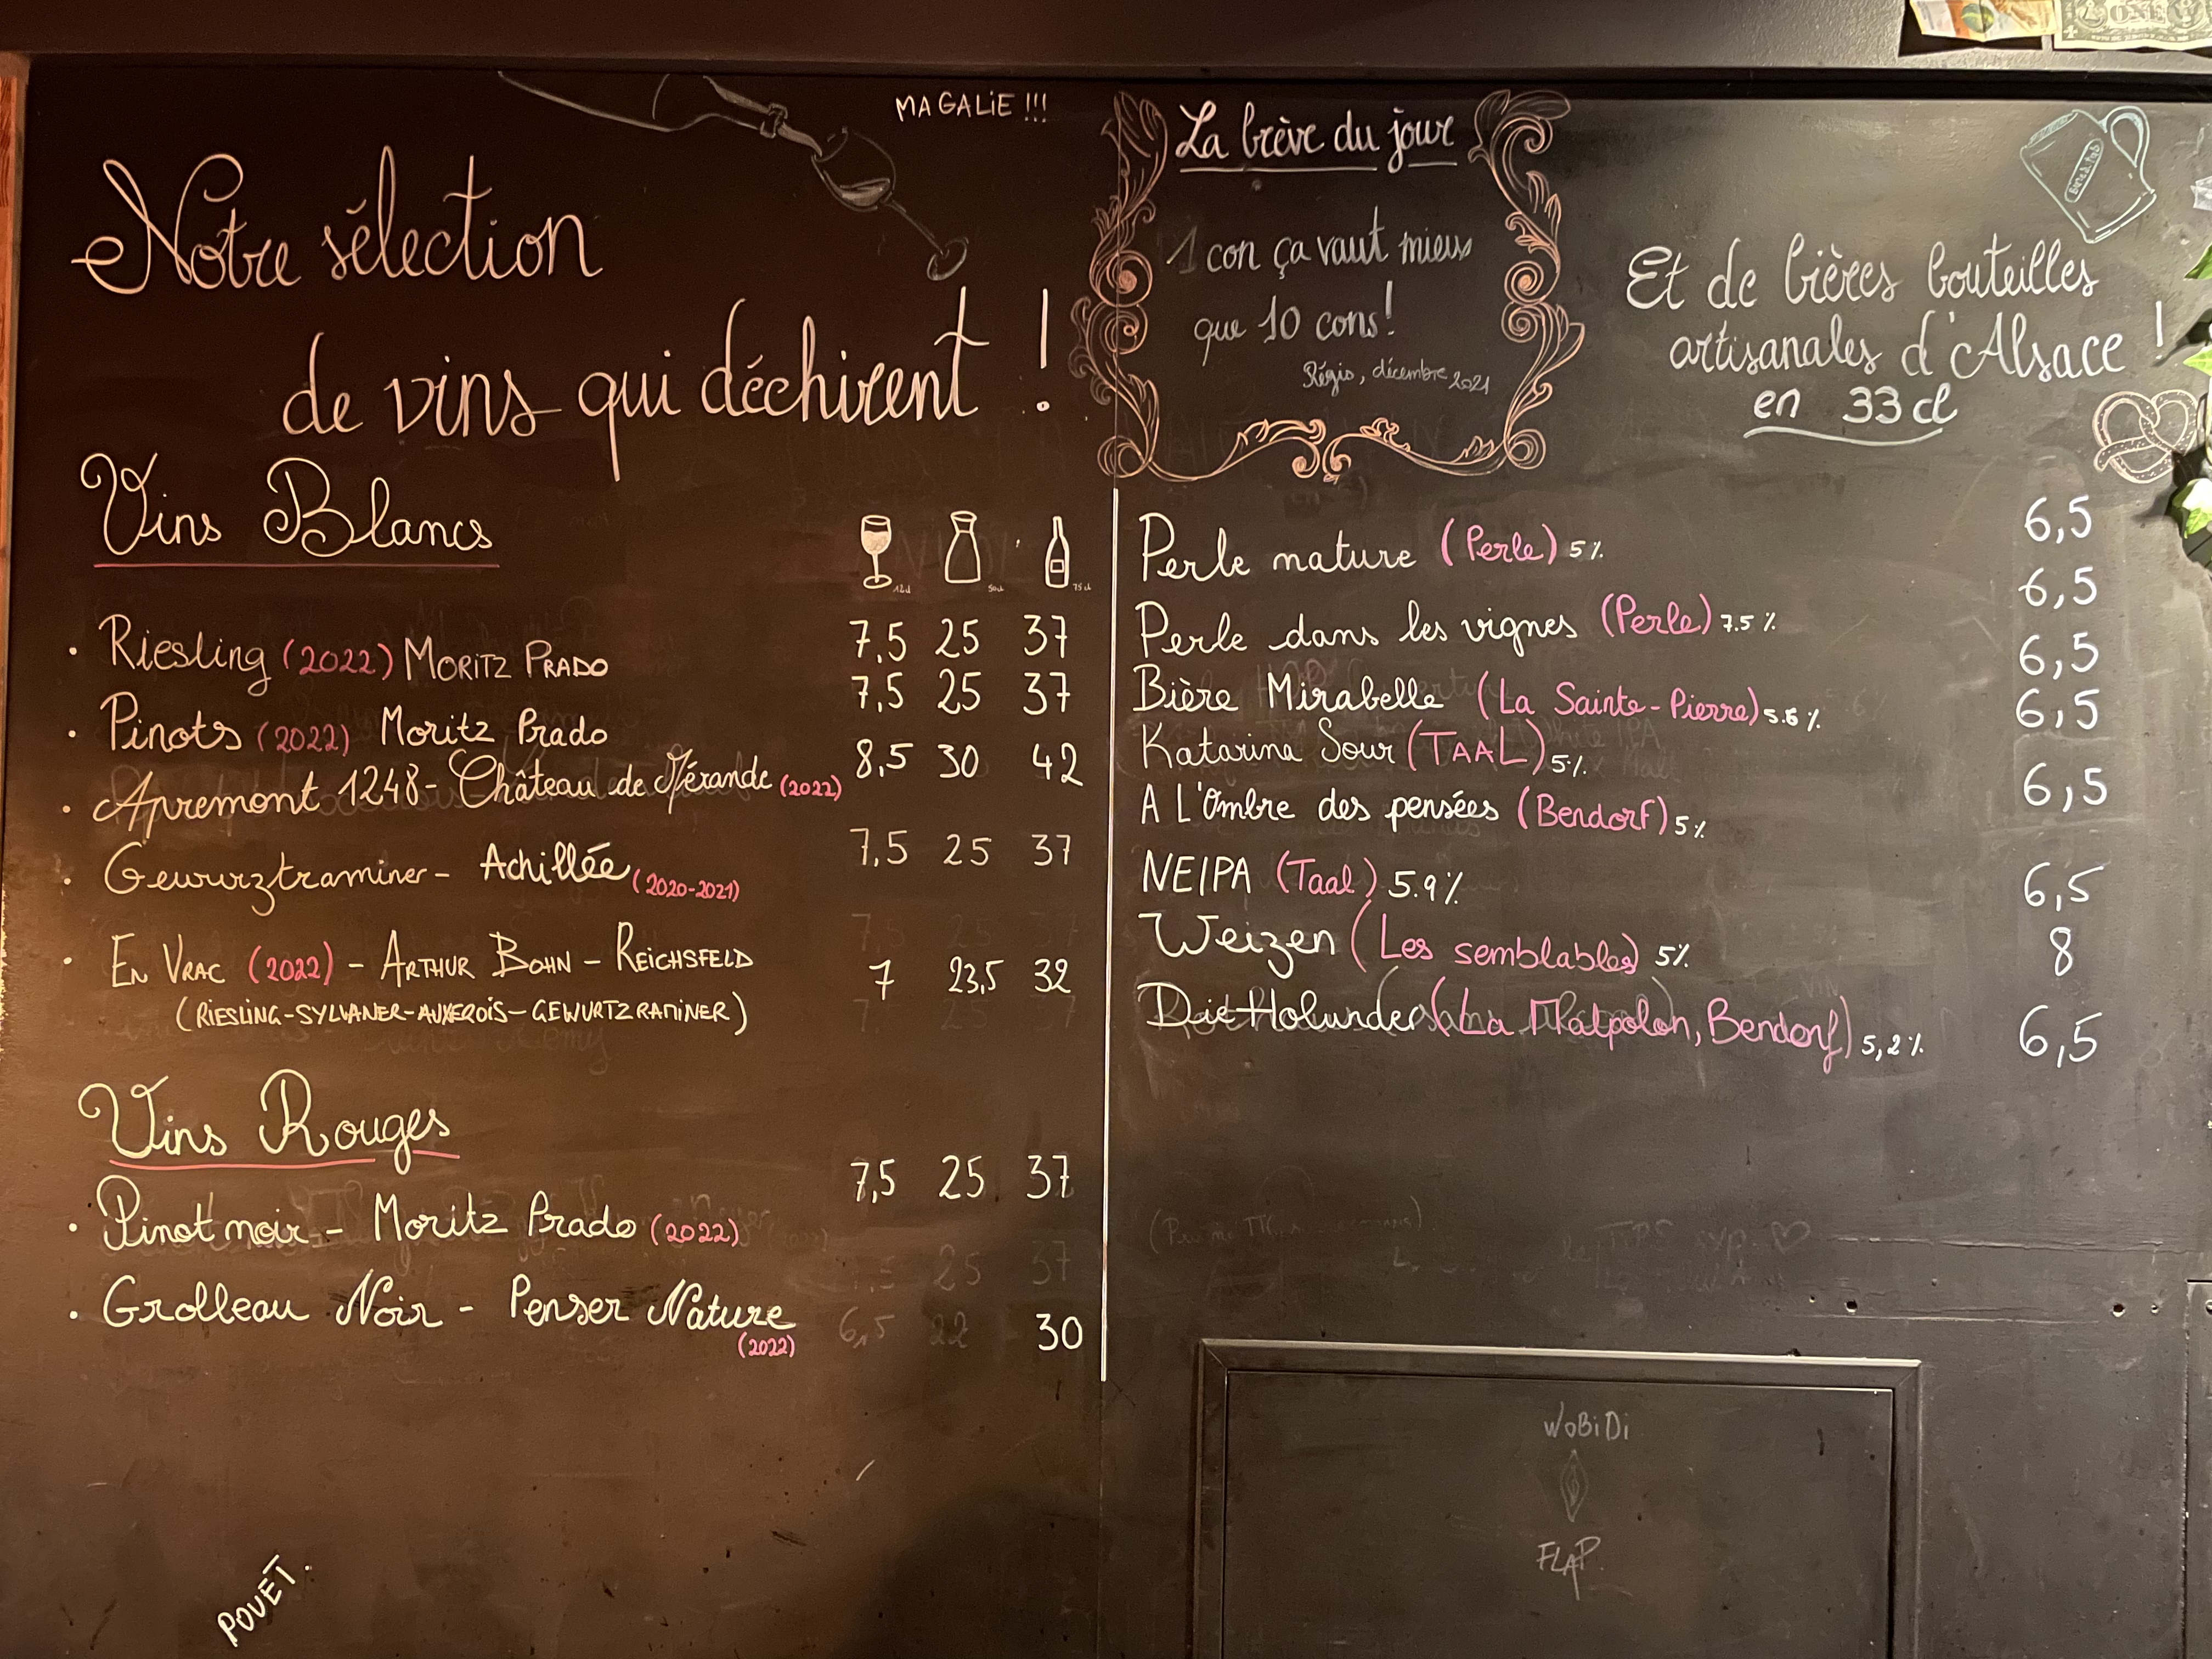 MAGALIE !!!
Notre sélection
de vins qui déchirent !
Vins Blancs
12cl 50cl 75cl
• Riesling (2022) MORITZ PRADO 7,5 25 37
• Pinots (2022) Moritz Prado 7,5 25 37
• Apremont 1248 - Château de Mérande (2022) 8,5 30 42
• Gewurztraminer - Achillée (2020-2021) 7,5 25 37
• EN VRAC (2022) - ARTHUR BOHN - REICHSFELD 7 23,5 32
(RIESLING-SYLVANER-AUXEROIS-GEWURTZRAMINER)
Vins Rouges
• Pinot noir - Moritz Prado (2022) 7,5 25 37
• Grolleau Noir - Penser Nature 6,5 22 30
(2022)
POUËT.
La brève du jour
1 con ça vaut mieux
que 10 cons!
Régis, décembre 2021
Et de bières bouteilles
artisanales d'Alsace !
en 33cl
Perle nature (Perle) 5% 6,5
Perle dans les vignes (Perle) 7.5% 6,5
Bière Mirabelle (La Sainte-Pierre) 5.6% 6,5
Katarina Sour (TAAL) 5% 6,5
A L'Ombre des pensées (Bendorf) 5% 6,5
NEIPA (Taal) 5.9% 6,5
Weizen (Les semblables) 5% 8
Die Holunder (La Malpolon, Bendorf) 5,2% 6,5
WOBiDi
FLAP.